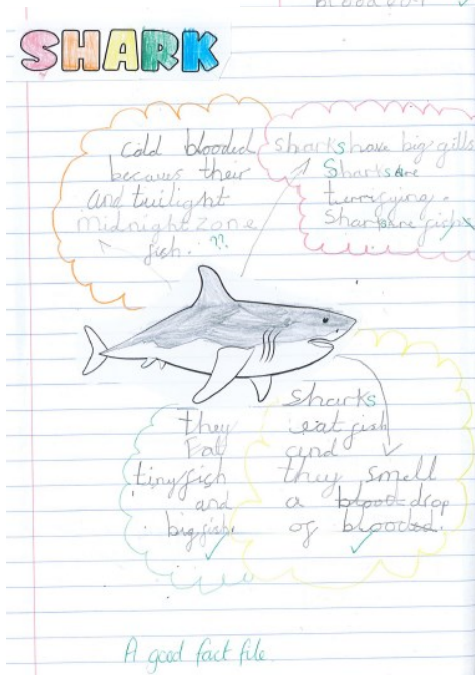 blood
SHARK
cold blooded
becaues their
and twilight
midnight zone
fish. ??
sharks have big gills
Sharks are
terrifying.
Sharks are fish
they
Eat
tiny fish
and
big fish.
Sharks
eat fish
and
they smell
a blood drop
of blooded.
A good fact file.